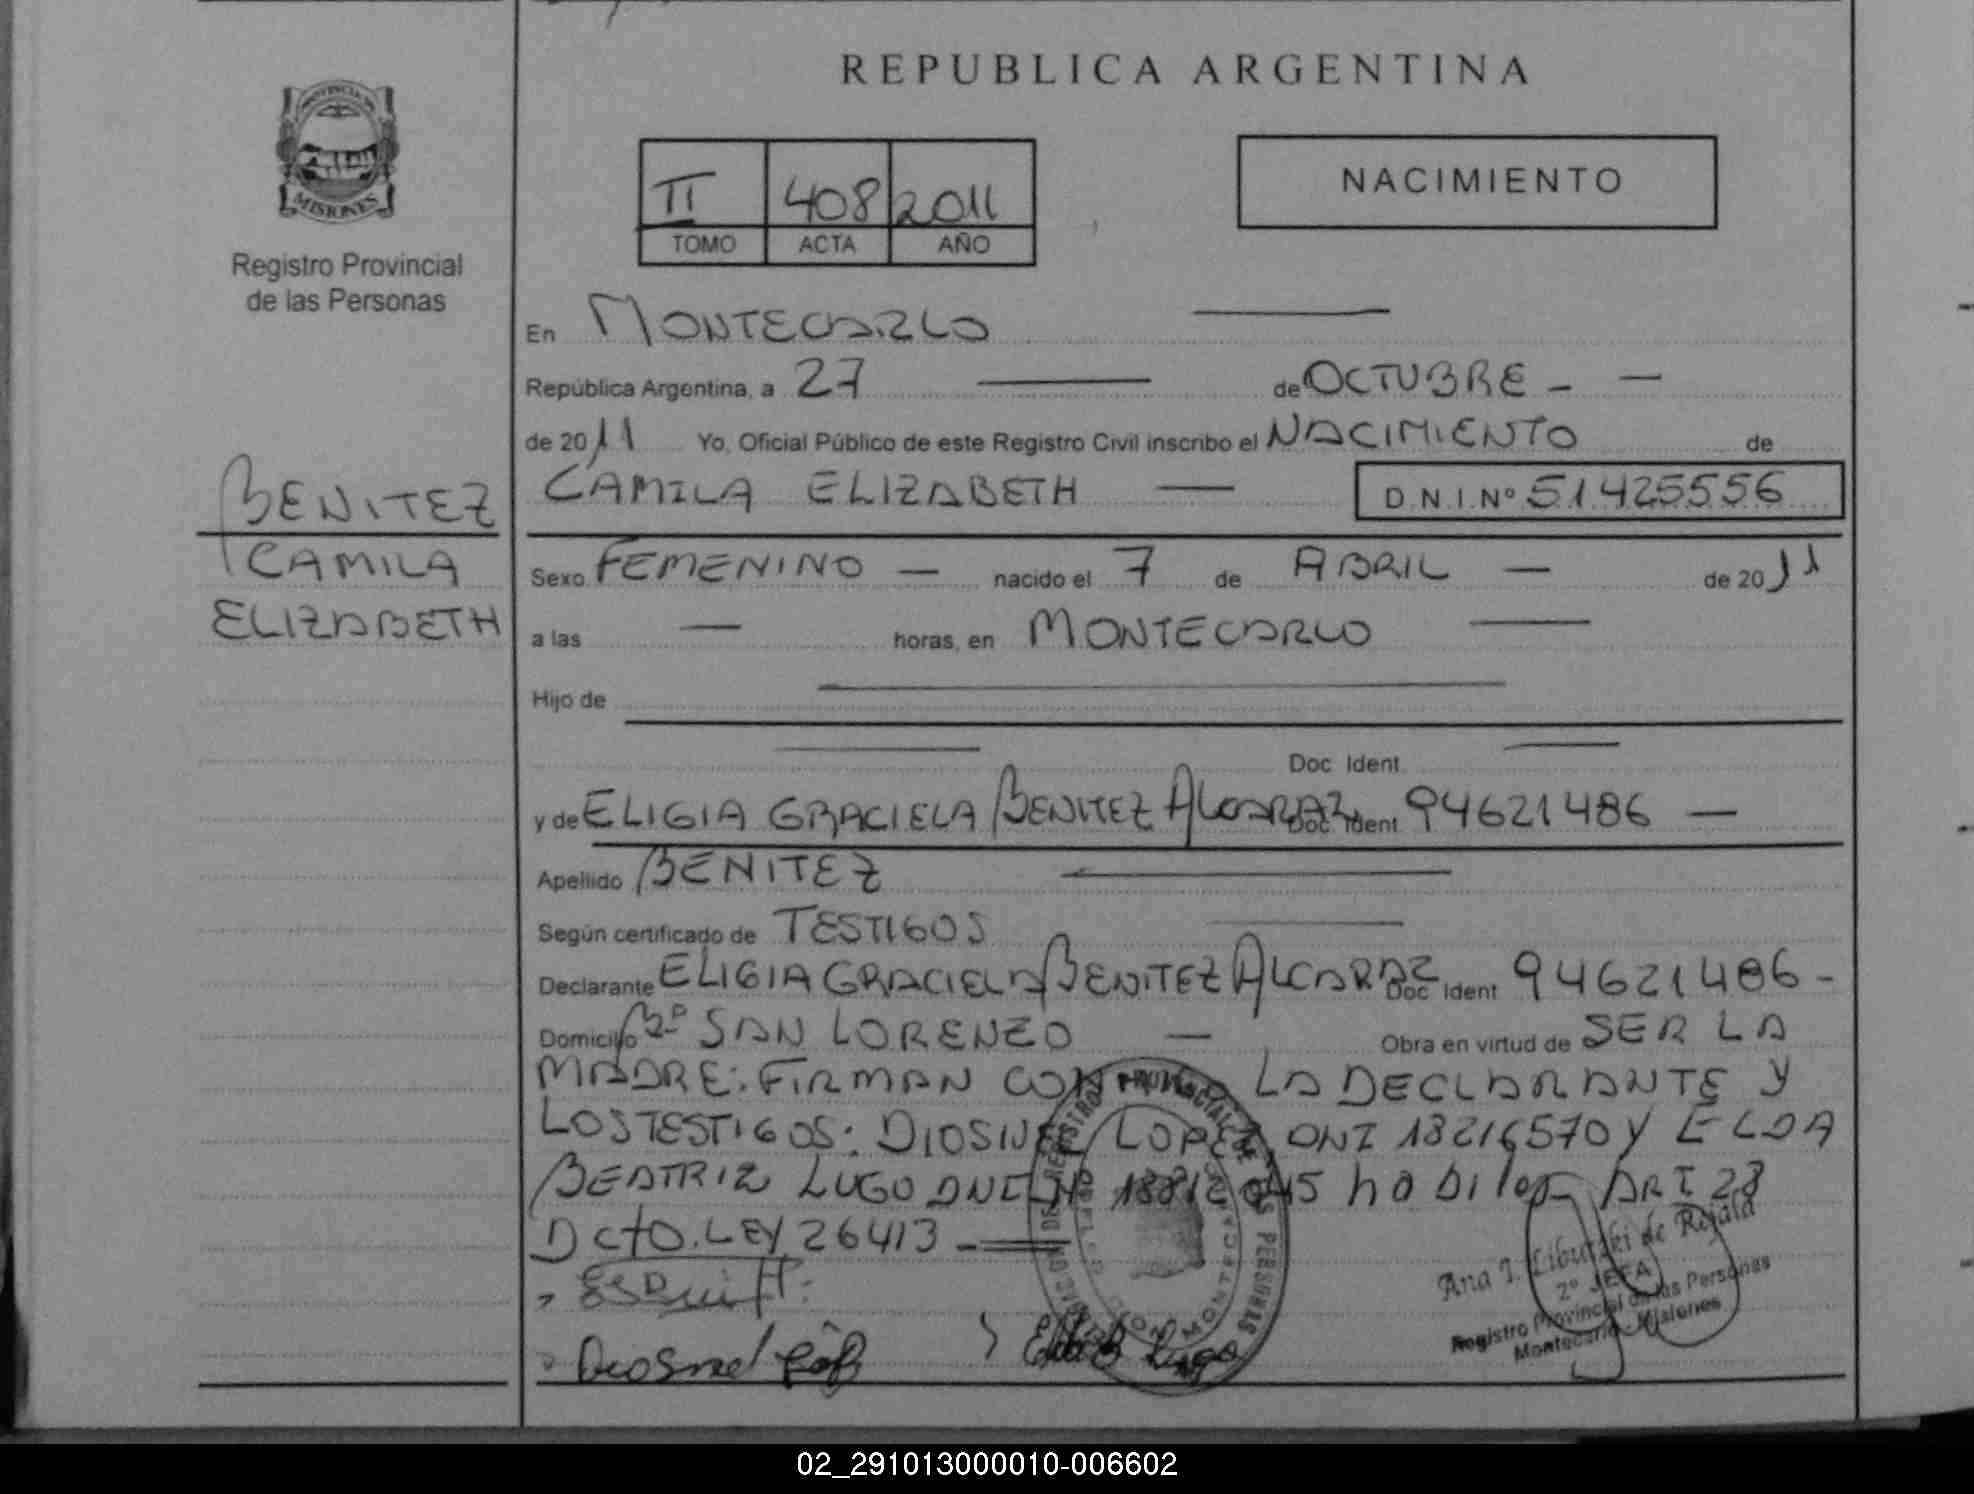 REPUBLICA ARGENTINA
PROVINCIA DE
MISIONES
Registro Provincial
de las Personas
II 408 2011
TOMO ACTA AÑO
NACIMIENTO
En MONTECARLO
República Argentina, a 27 de OCTUBRE
de 2011 Yo, Oficial Público de este Registro Civil inscribo el NACIMIENTO de
CAMILA ELIZABETH D.N.I.Nº 51425556
BENITEZ
CAMILA
ELIZABETH
Sexo FEMENINO nacido el 7 de ABRIL de 2011
a las — horas, en MONTECARLO
Hijo de
Doc Ident
y de ELIGIA GRACIELA BENITEZ ALCARAZ Doc Ident 94621486
Apellido BENITEZ
Según certificado de TESTIGOS
Declarante ELIGIA GRACIELA BENITEZ ALCARAZ Doc Ident 94621486
Domicilio Bº SAN LORENZO Obra en virtud de SER LA
MADRE: FIRMAN CON LA DECLARANTE Y
LOS TESTIGOS: LOPEZ DNI 18216570 Y ELDA
BEATRIZ LUGO DNI Nº habiles ART 28
Dcto. LEY 26413
REGISTRO PROVINCIAL DE LAS PERSONAS
MONTECARLO
Ana I. de Rejala
2º JEFA
Registro Provincial de las Personas
Montecarlo - Misiones
02_291013000010-006602